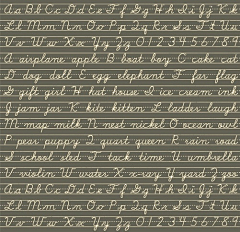 Aa Bb Cc Dd Ee Ff Gg Hh Ii Jj Kk
Ll Mm Nn Oo Pp Qq Rr Ss Tt Uu
Vv Ww Xx Yy Zz 0 1 2 3 4 5 6 7 8 9
A airplane apple B boat boy C cake cat
D dog doll E egg elephant F far flag
G gift girl H hat house I ice cream ink
J jam jar K kite kitten L ladder laugh
M map milk N nest nickel O ocean owl
P pear puppy Q quart queen R rain road
S school sled T tack time U umbrella
V violin W water X x-ray Y yard Z zoo
Aa Bb Cc Dd Ee Ff Gg Hh Ii Jj Kk
Ll Mm Nn Oo Pp Qq Rr Ss Tt Uu
Vv Ww Xx Yy Zz 0 1 2 3 4 5 6 7 8 9